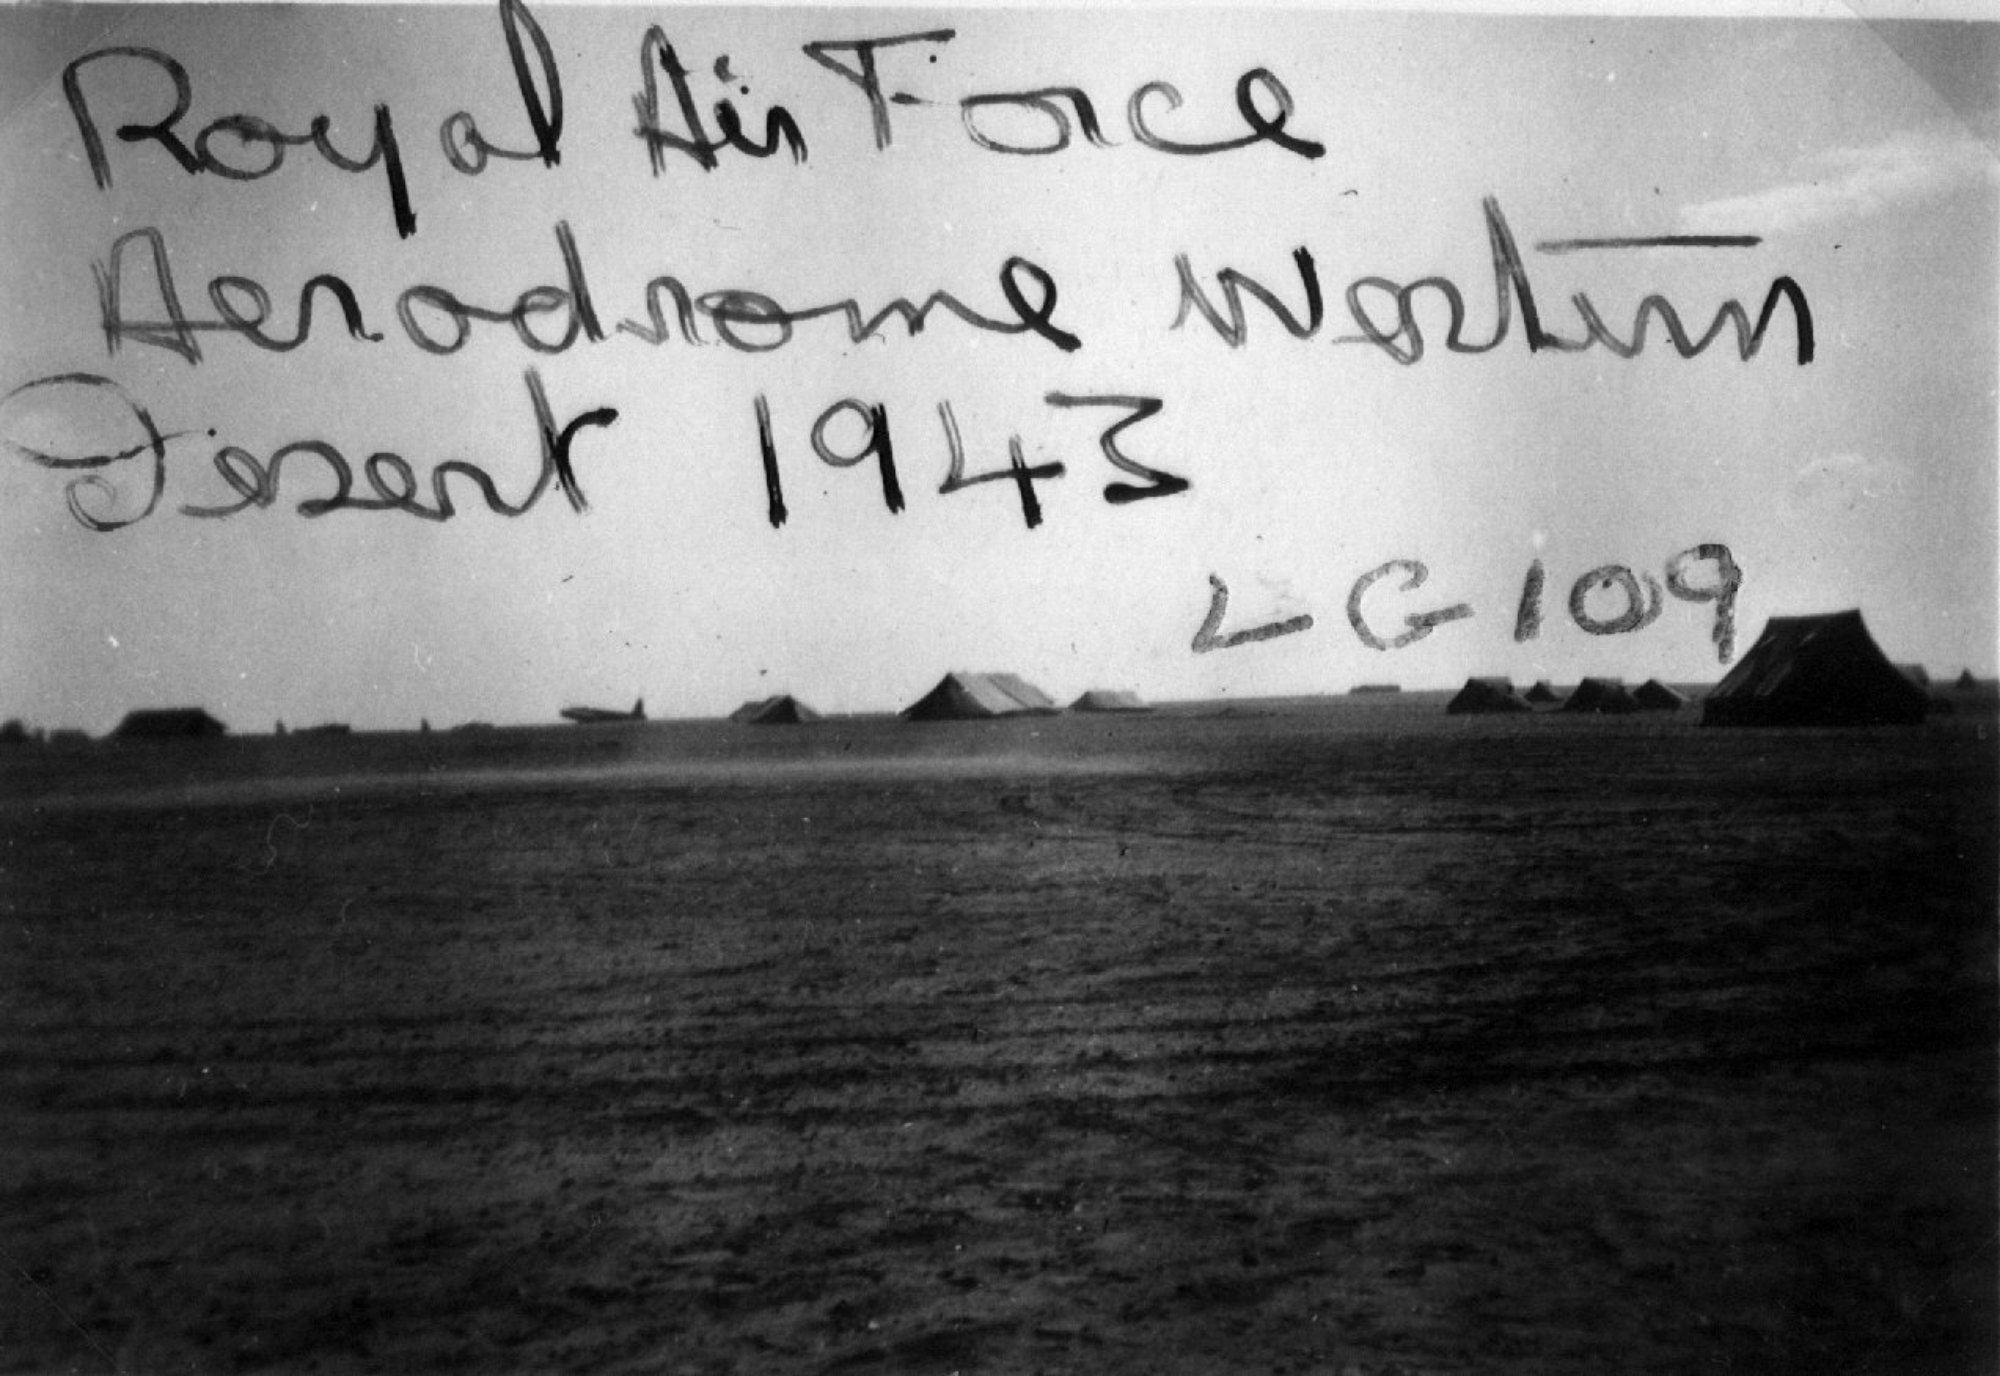 Royal Air Force
Aerodrome Western
Desert 1943
LG 109